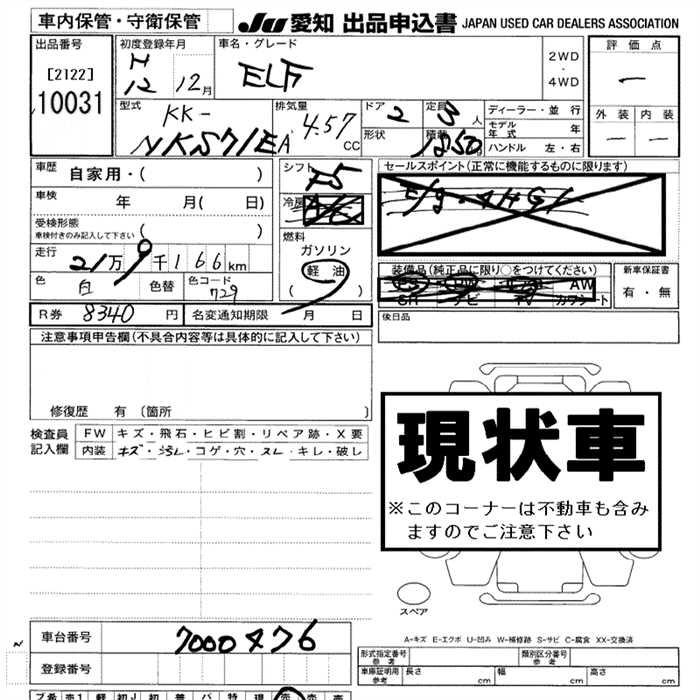 車内保管・守衛保管 JU 愛知 出品申込書 JAPAN USED CAR DEALERS ASSOCIATION
出品番号 初度登録年月 車名・グレード 評価点
[2122] H 12年 12月 ELF 2WD・4WD ー
10031
型式 KK- 排気量 4.57 CC ドア 2 定員 3人 ディーラー・並行 外装 内装
NKS71EA 形状 積載 1850 モデル年式 年 ー ー
ハンドル 左・右
車歴 自家用・( ) シフト F5 セールスポイント(正常に機能するものに限ります)
車検 年 月( 日) 冷房 E/g・4HG1
受検形態 ( ) 燃料
車検付きのみ記入して下さい ガソリン
走行 21万9千166km 軽油 装備品(純正品に限り○をつけてください) 新車保証書
色 白 色替 色コード 729 ( ) AW 有・無
SR ナビ TV カワシート
R券 8340円 名変通知期限 月 日 後日品
注意事項申告欄(不具合内容等は具体的に記入して下さい)
修復歴 有 〔箇所 〕
検査員 FW キズ・飛石・ヒビ割・リペア跡・X要
記入欄 内装 キズ・汚レ・コゲ・穴・スレ・キレ・破レ
現状車
※このコーナーは不動車も含み
ますのでご注意下さい
スペア
A-キズ E-エクボ U-凹み W-補修跡 S-サビ C-腐食 XX-交換済
車台番号 7000476
形式指定番号 参考 類別区分番号 参考
登録番号 車庫証明用 参考 長さ cm 幅 cm 高さ cm